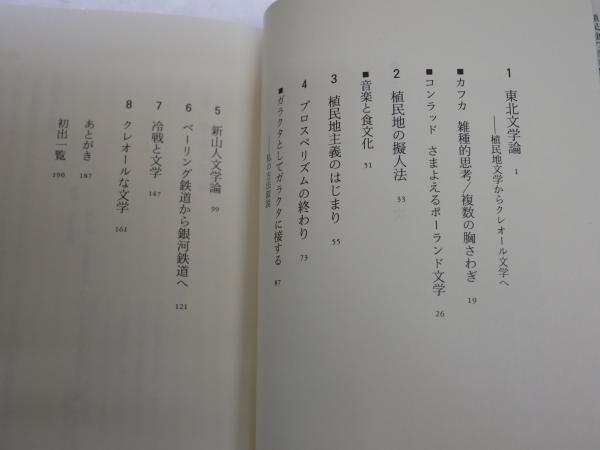 1 東北文学論 1
――植民地文学からクレオール文学へ
■カフカ 雑種的思考/複数の胸さわぎ 19
■コンラッド さまよえるポーランド文学 26
2 植民地の擬人法 33
■音楽と食文化 51
3 植民地主義のはじまり 55
4 プロスペリズムの終わり 73
■ガラクタとしてガラクタに接する 87
5 新山人文学論 99
6 ベーリング鉄道から銀河鉄道へ 121
7 冷戦と文学 147
8 クレオールな文学 161
あとがき 187
初出一覧 190